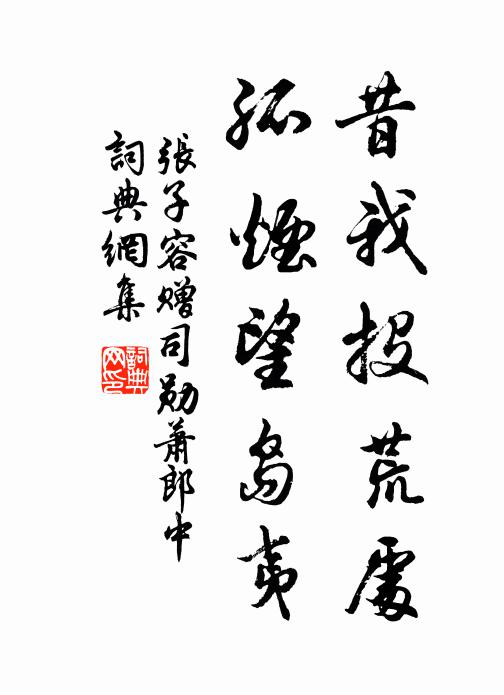 昔我投荒處
孤煙望島夷
張子容贈司勛蕭郎中
詞典網集
詞典網印